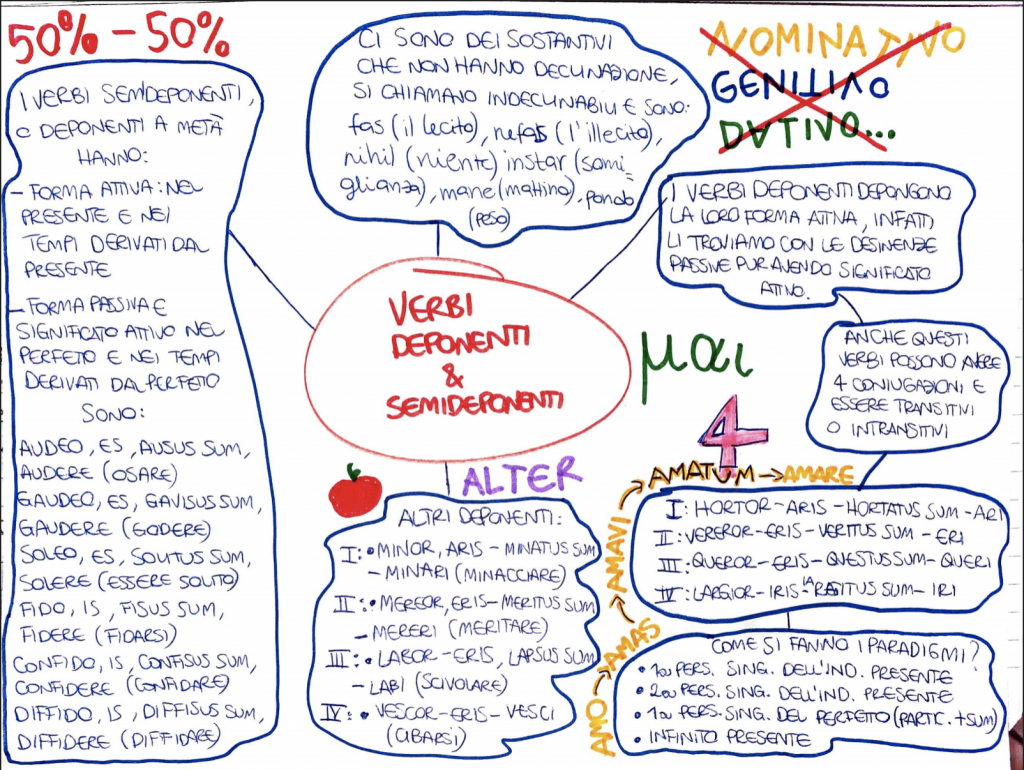 50% - 50%
I VERBI SEMIDEPONENTI,
O DEPONENTI A METÀ
HANNO:
- FORMA ATTIVA: NEL
PRESENTE E NEI
TEMPI DERIVATI DAL
PRESENTE
- FORMA PASSIVA E
SIGNIFICATO ATTIVO NEL
PERFETO E NEI TEMPI
DERIVATI DAL PERFETO
SONO:
AUDEO, ES, AUSUS SUM,
AUDERE (OSARE)
GAUDEO, ES, GAVISUS SUM,
GAUDERE (GODERE)
SOLEO, ES, SOLITUS SUM,
SOLERE (ESSERE SOLITO)
FIDO, IS, FISUS SUM,
FIDERE (FIDARSI)
CONFIDO, IS, CONFISUS SUM,
CONFIDERE (CONFIDARE)
DIFFIDO, IS, DIFFISUS SUM,
DIFFIDERE (DIFFIDARE)
CI SONO DEI SOSTANTIVI
CHE NON HANNO DECLINAZIONE,
SI CHIAMANO INDECLINABILI E SONO:
fas (il lecito), nefas (l'illecito),
nihil (niente) instar (somi=
glianza), mane (mattino), pondo
(peso)
NOMINATIVO
GENITIVO
DATIVO...
I VERBI DEPONENTI DEPONGONO
LA LORO FORMA ATTIVA, INFATI
LI TROVIAMO CON LE DESINENZE
PASSIVE PUR AVENDO SIGNIFICATO
ATTIVO.
VERBI
DEPONENTI
&
SEMIDEPONENTI
μαι
ANCHE QUESTI
VERBI POSSONO AVERE
4 CONIUGAZIONI E
ESSERE TRANSITIVI
O INTRANSITIVI
4
ALTER
ALTRI DEPONENTI:
I: • MINOR, ARIS - MINATUS SUM
- MINARI (MINACCIARE)
II: • MEREOR, ERIS - MERITUS SUM
- MERERI (MERITARE)
III: • LABOR - ERIS, LAPSUS SUM
- LABI (SCIVOLARE)
IV: • VESCOR - ERIS - VESCI
(CIBARSI)
AMO → AMAS → AMAVI → AMATUM → AMARE
I: HORTOR - ARIS - HORTATUS SUM - ARI
II: VEREROR - ERIS - VERITUS SUM - ERI
III: QUEROR - ERIS - QUESTUS SUM - QUERI
IV: LARGIOR - IRIS - LARGITUS SUM - IRI
COME SI FANNO I PARADIGMI?
• 1a PERS. SING. DELL'IND. PRESENTE
• 2a PERS. SING. DELL'IND. PRESENTE
• 1a PERS. SING. DEL PERFETO (PARTIC. + SUM)
• INFINITO PRESENTE